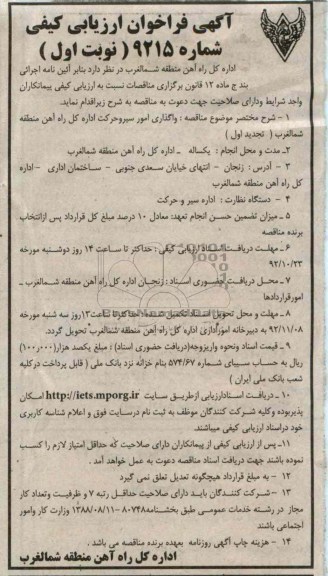 آگهی فراخوان ارزیابی کیفی
شماره ۹۲۱۵ ( نوبت اول )
اداره کل راه آهن منطقه شمالغرب در نظر دارد بنابر آئین نامه اجرائی
بند ج ماده ۱۲ قانون برگزاری مناقصات نسبت به ارزیابی کیفی پیمانکاران
واجد شرایط ودارای صلاحیت جهت دعوت به مناقصه به شرح زیراقدام نماید.
۱ - شرح مختصر موضوع مناقصه : واگذاری امور سیروحرکت اداره کل راه آهن منطقه
شمالغرب ( تجدید اول )
۲- مدت و محل انجام : یکساله ـ اداره کل راه آهن منطقه شمالغرب
۳ - آدرس : زنجان - انتهای خیابان سعدی جنوبی - ساختمان اداری - اداره
کل راه آهن منطقه شمالغرب
۴ - دستگاه نظارت : اداره سیر و حرکت
۵ ـ میزان تضمین حسن انجام تعهد: معادل ۱۰ درصد مبلغ کل قرارداد پس ازانتخاب
برنده مناقصه
۶ - مهلت دریافت اسناد ارزیابی کیفی : حداکثر تا ساعت ۱۴ روز دوشنبه مورخه
۹۲/۱۰/۲۳
۷ - محل دریافت حضوری اسناد : زنجان اداره کل راه آهن منطقه شمالغرب ـ
امورقراردادها
۸ - مهلت و محل تحویل اسناد تکمیل شده: حداکثر تا ساعت ۱۳ روز سه شنبه مورخه
۹۲/۱۱/۰۸ به دبیرخانه اموراداری اداره کل راه آهن منطقه شمالغرب تحویل گردد.
۹ - قیمت اسناد ونحوه واریزوجه(دریافت حضوری اسناد) : مبلغ یکصد هزار(۱۰۰٫۰۰۰)
ریال به حساب سیبای شماره ۵۷۴/۶۷ بنام خزانه نزد بانک ملی ( قابل پرداخت درکلیه
شعب بانک ملی ایران )
۱۰ - دریافت اسنادارزیابی ازطریق سایت http://iets.mporg.ir امکان
پذیربوده وکلیه شرکت کنندگان موظف به ثبت نام درسایت فوق و اعلام شناسه کاربری
خود دراسناد ارزیابی کیفی میباشند.
۱۱- پس از ارزیابی کیفی از پیمانکاران دارای صلاحیت که حداقل امتیاز لازم را کسب
نموده باشند جهت دریافت اسناد مناقصه دعوت به عمل خواهد آمد .
۱۲ - به مبلغ قرارداد هیچگونه تعدیل تعلق نمی گیرد
۱۳ - شرکت کنندگان باید دارای صلاحیت حداقل رتبه ۷ و ظرفیت وتعداد کار
مجاز در رشته خدمات عمومی طبق بخشنامه ۸۰۷۴۸ - ۱۳۸۸/۰۸/۱۱ وزارت کار وامور
اجتماعی باشند
۱۴ - هزینه چاپ آگهی روزنامه بعهده برنده مناقصه می باشد .
اداره کل راه آهن منطقه شمالغرب